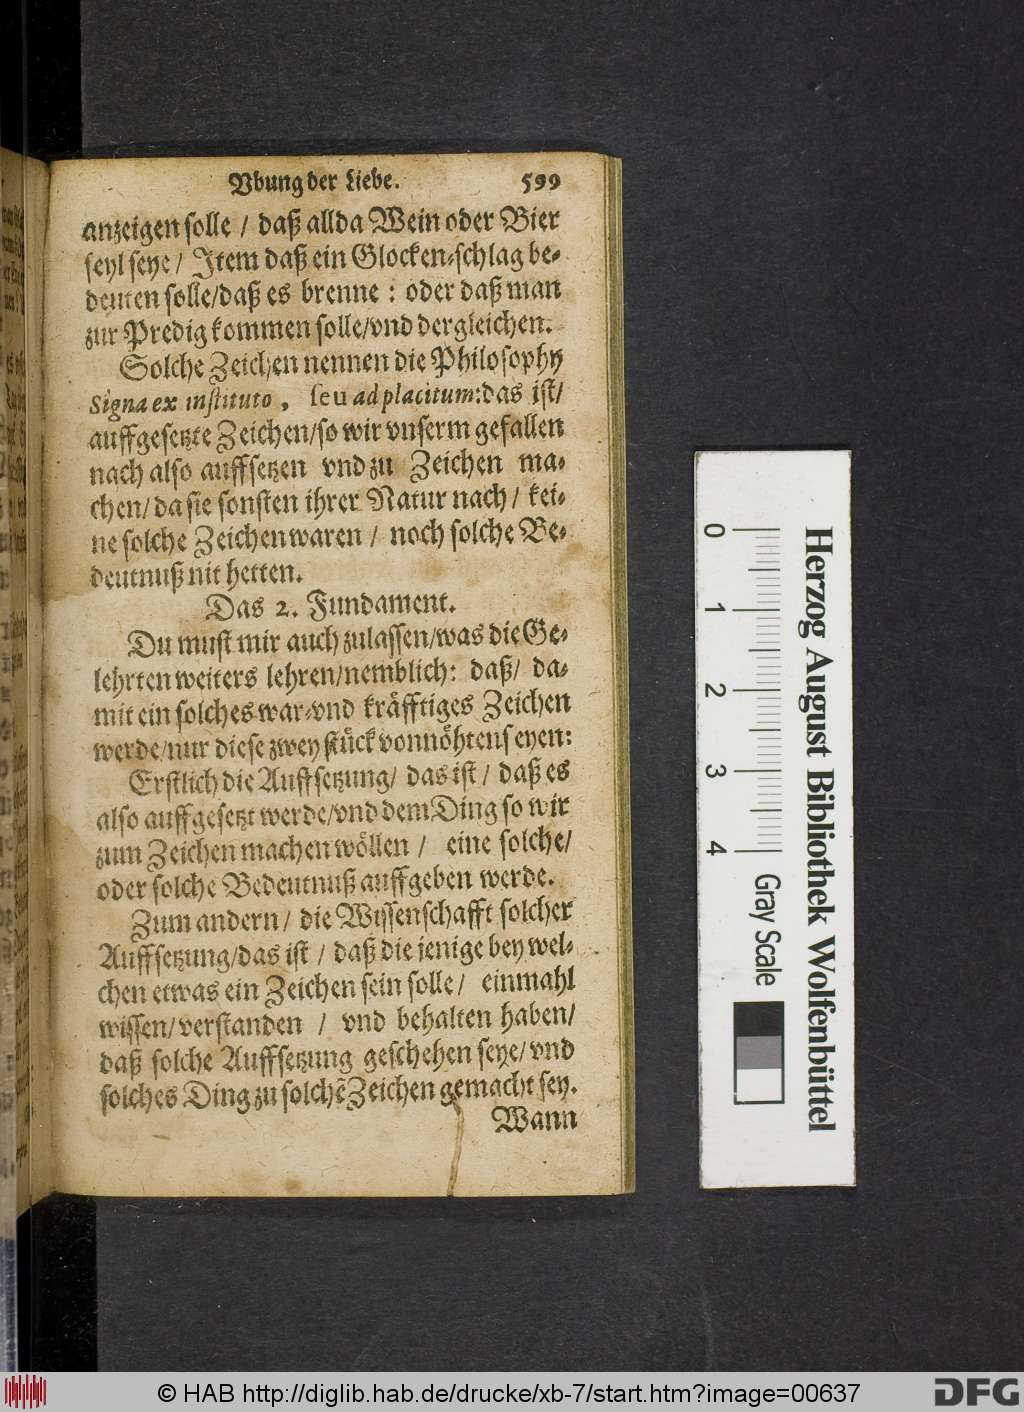 Vbung der Liebe. 599
anzeigen solle / daß allda Wein oder Bier
feyl seye / Item daß ein Glocken-schlag be-
deuten solle/daß es brenne : oder daß man
zur Predig kommen solle/vnd dergleichen.
Solche Zeichen nennen die Philosophy
Signa ex instituto, seu ad placitum: das ist/
auffgesetzte Zeichen/so wir vnserm gefallen
nach also auffsetzen vnd zu Zeichen ma-
chen/ da sie sonsten ihrer Natur nach / kei-
ne solche Zeichen waren / noch solche Be-
deutnuß nit hetten.
Das 2. Fundament.
Du must mir auch zulassen/was die Ge-
lehrten weiters lehren/nemblich: daß/ da-
mit ein solches war-vnd kräfftiges Zeichen
werde/nur diese zwey stück vonnöhten seyen:
Erstlich die Auffsetzung/ das ist / daß es
also auffgesetzt werde/vnd dem Ding so wir
zum Zeichen machen wöllen / eine solche/
oder solche Bedeutnuß auffgeben werde.
Zum andern / die Wissenschafft solcher
Auffsetzung/das ist / daß die jenige bey wel-
chen etwas ein Zeichen sein solle / einmahl
wissen/verstanden / vnd behalten haben/
daß solche Auffsetzung geschehen seye/vnd
solches Ding zu solchẽ Zeichen gemacht sey.
Wann
0 1 2 3 4 Gray Scale
Herzog August Bibliothek Wolfenbüttel
© HAB http://diglib.hab.de/drucke/xb-7/start.htm?image=00637
DFG